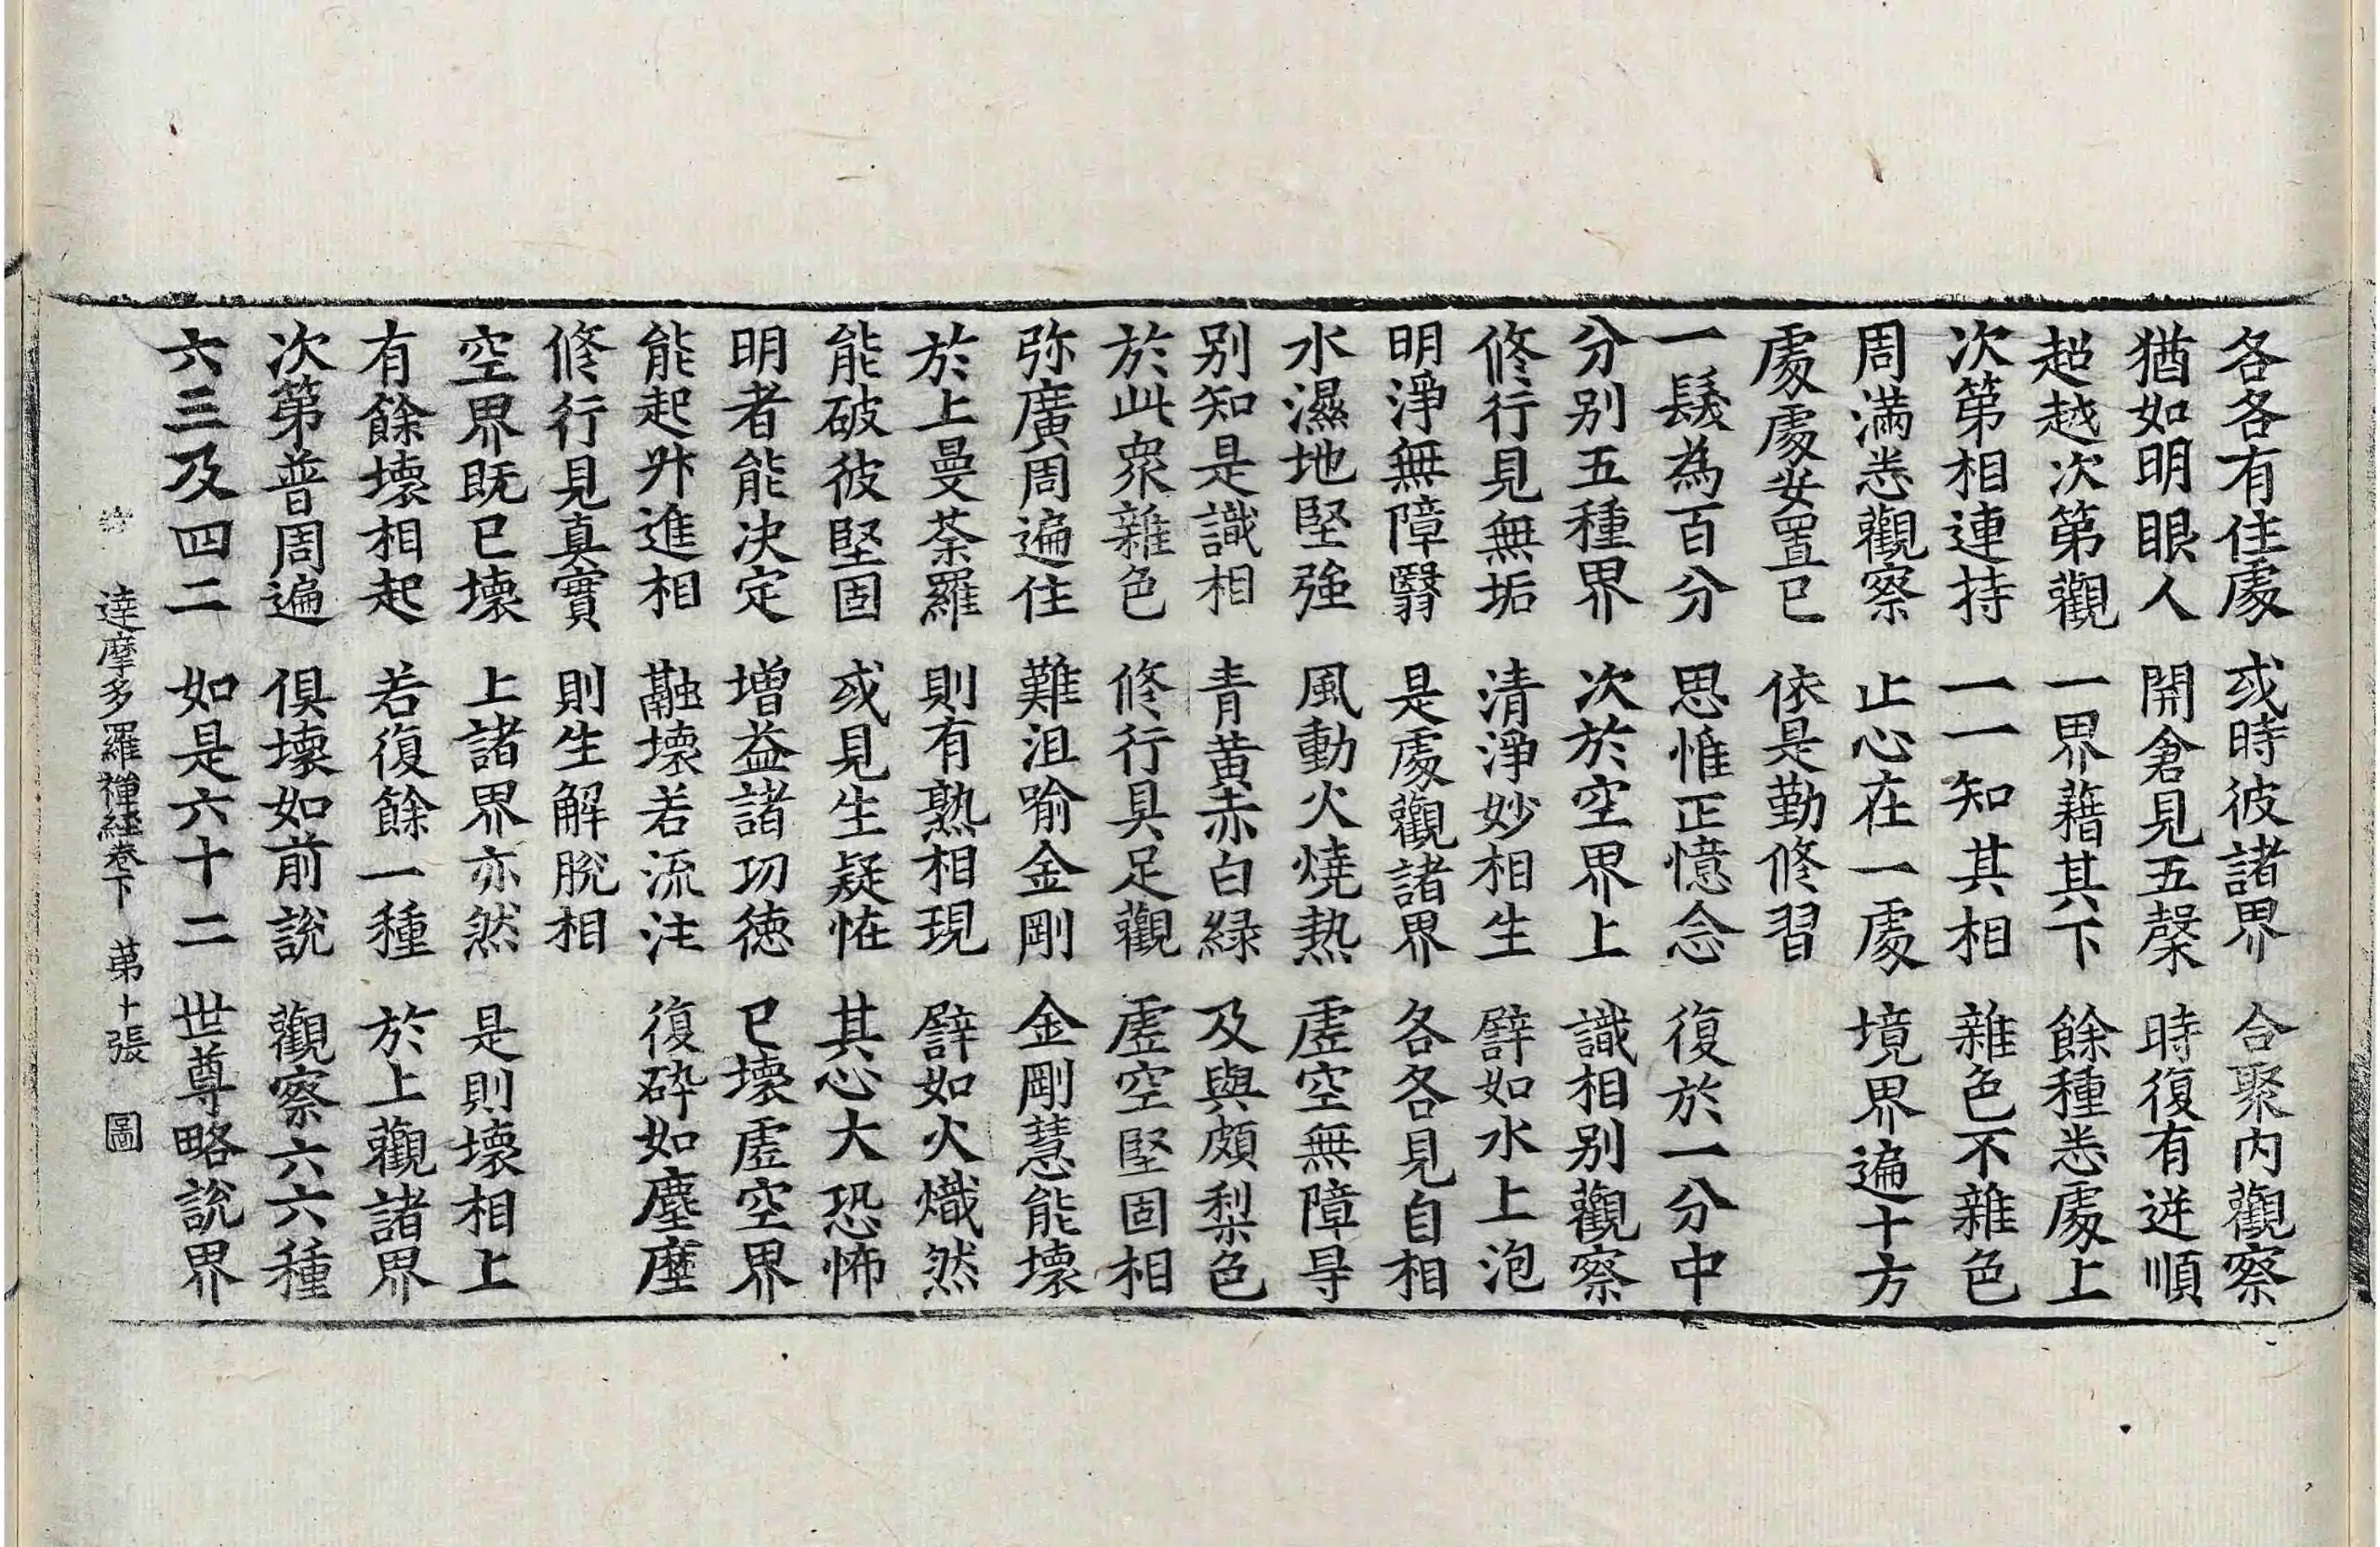 各各有住處 或時彼諸界 合聚內觀察
猶如明眼人 開倉見五糓 時復有逆順
超越次第觀 一界藉其下 餘種悉處上
次第相連持 一一知其相 雜色不雜色
周滿悉觀察 止心在一處 境界遍十方
處處安置已 依是勤修習
一髮為百分 思惟正憶念 復於一分中
分別五種界 次於空界上 識相別觀察
修行見無垢 清淨妙相生 譬如水上泡
明淨無障翳 是處觀諸界 各各見自相
水濕地堅強 風動火燒熱 虛空無障㝵
別知是識相 青黃赤白綠 及與頗梨色
於此衆雜色 修行具足觀 虛空堅固相
弥廣周遍住 難沮喻金剛 金剛慧能壞
於上曼荼羅 則有熟相現 譬如火熾然
能破彼堅固 或見生疑恠 其心大恐怖
明者能決定 增益諸功德 已壞虛空界
能起升進相 融壞若流注 復碎如塵塵
修行見真實 則生解脫相
空界旣已壞 上諸界亦然 是則壞相上
有餘壞相起 若復餘一種 於上觀諸界
次第普周遍 俱壞如前說 觀察六六種
六三及四二 如是六十二 世尊略說界
達摩多羅禪經卷下 苐十張 圖